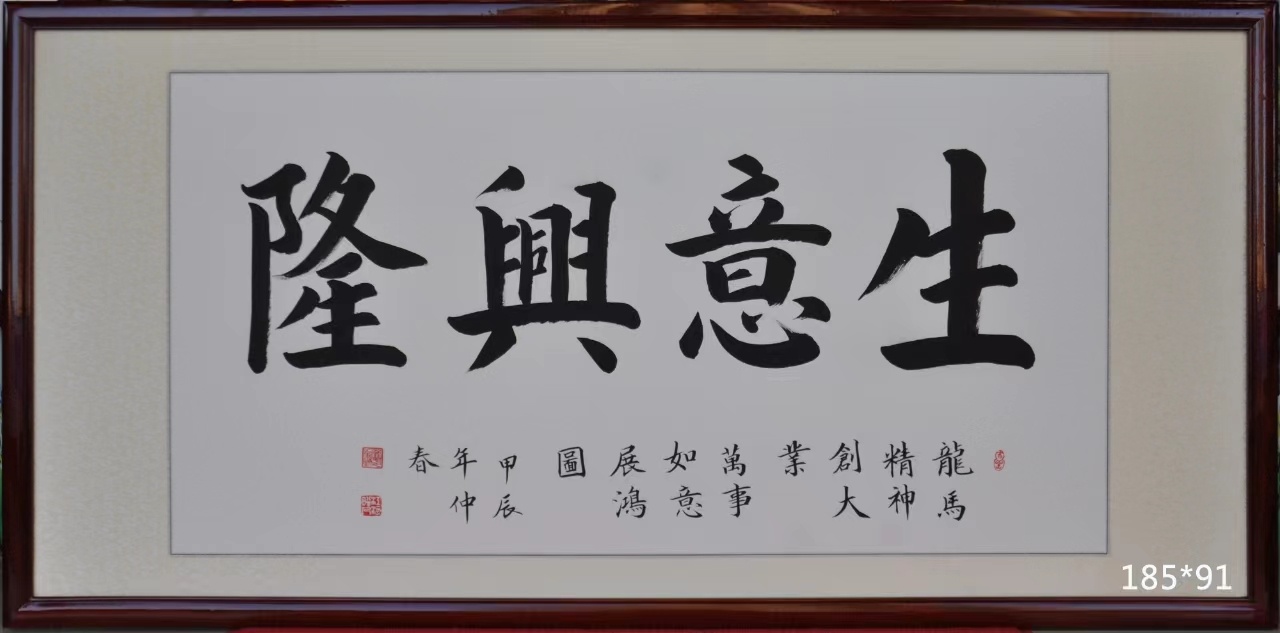 生意興隆
龍馬
精神
創大
業
萬事
如意
展鴻
圖
甲辰
年仲
春
185*91